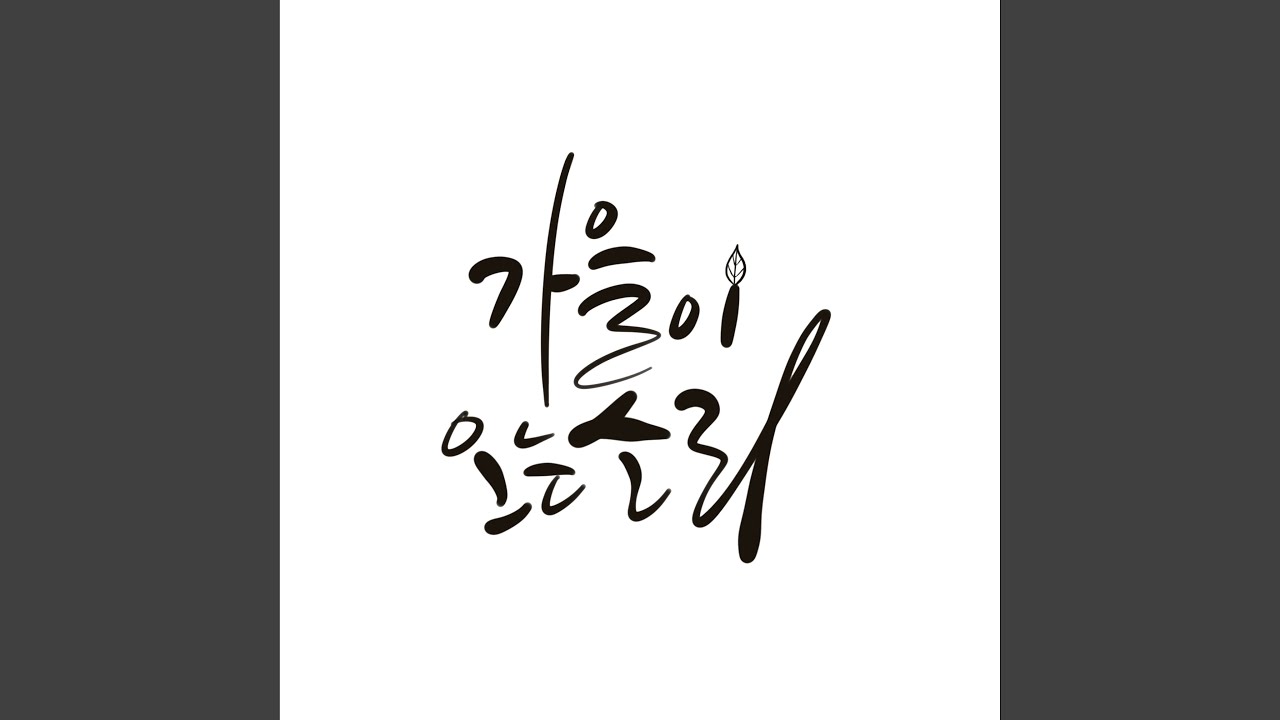 가을이
오는 소리